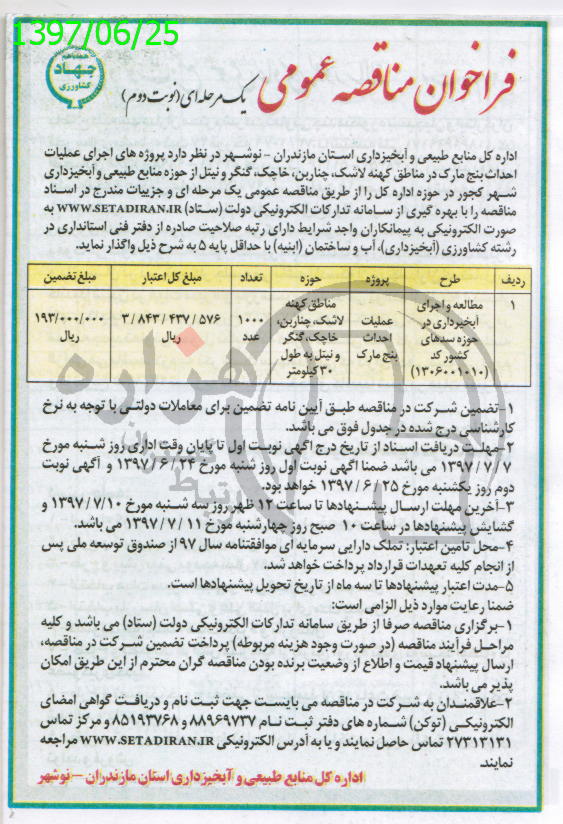 1397/06/25
هفته دهم
جهاد
کشاورزی
فراخوان مناقصه عمومی
یک مرحله ای (نوبت دوم)
اداره کل منابع طبیعی و آبخیزداری استان مازندران - نوشهر در نظر دارد پروژه های اجرای عملیات
احداث بنچ مارک در مناطق کهنه لاشک، چنارین، خاچک، گنگر و نیتل از حوزه منابع طبیعی و آبخیزداری
شهر کجور در حوزه اداره کل را از طریق مناقصه عمومی یک مرحله ای و جزییات مندرج در اسناد
مناقصه را با بهره گیری از سامانه تدارکات الکترونیکی دولت (ستاد) WWW.SETADIRAN.IR به
صورت الکترونیکی به پیمانکاران واجد شرایط دارای رتبه صلاحیت صادره از دفتر فنی استانداری در
رشته کشاورزی (آبخیزداری)، آب و ساختمان (ابنیه) با حداقل پایه ۵ به شرح ذیل واگذار نماید.
ردیف طرح پروژه حوزه تعداد مبلغ کل اعتبار مبلغ تضمین
۱ مطالعه و اجرای آبخیزداری در حوزه سدهای کشور کد (۱۳۰۶۰۰۱۰۱۰) عملیات احداث بنچ مارک مناطق کهنه لاشک، چنارین، خاچک، گنگر و نیتل به طول ۳۰ کیلومتر ۱۰۰۰ عدد ۳/۸۴۳/۴۳۷/۵۷۶ ریال ۱۹۳/۰۰۰/۰۰۰ ریال
۱-تضمین شرکت در مناقصه طبق آیین نامه تضمین برای معاملات دولتی با توجه به نرخ
کارشناسی درج شده در جدول فوق می باشد.
۲-مهلت دریافت اسناد از تاریخ درج آگهی نوبت اول تا پایان وقت اداری روز شنبه مورخ
۱۳۹۷/۷/۷ می باشد ضمنا آگهی نوبت اول روز شنبه مورخ ۱۳۹۷/۶/۲۴ و آگهی نوبت
دوم روز یکشنبه مورخ ۱۳۹۷/۶/۲۵ خواهد بود.
۳-آخرین مهلت ارسال پیشنهادها تا ساعت ۱۲ ظهر روز سه شنبه مورخ ۱۳۹۷/۷/۱۰ و
گشایش پیشنهادها در ساعت ۱۰ صبح روز چهارشنبه مورخ ۱۳۹۷/۷/۱۱ می باشد.
۴-محل تامین اعتبار: تملک دارایی سرمایه ای موافقتنامه سال ۹۷ از صندوق توسعه ملی پس
از انجام کلیه تعهدات قرارداد پرداخت خواهد شد.
۵-مدت اعتبار پیشنهادها تا سه ماه از تاریخ تحویل پیشنهادها است.
ضمنا رعایت موارد ذیل الزامی است:
۱-برگزاری مناقصه صرفا از طریق سامانه تدارکات الکترونیکی دولت (ستاد) می باشد و کلیه
مراحل فرآیند مناقصه (در صورت وجود هزینه مربوطه) پرداخت تضمین شرکت در مناقصه،
ارسال پیشنهاد قیمت و اطلاع از وضعیت برنده بودن مناقصه گران محترم از این طریق امکان
پذیر می باشد.
۲-علاقمندان به شرکت در مناقصه می بایست جهت ثبت نام و دریافت گواهی امضای
الکترونیکی (توکن) شماره های دفتر ثبت نام ۸۸۹۶۹۷۳۷ و ۸۵۱۹۳۷۶۸ و مرکز تماس
۲۷۳۱۳۱۳۱ تماس حاصل نمایند و یا به آدرس الکترونیکی WWW.SETADIRAN.IR مراجعه
نمایند.
اداره کل منابع طبیعی و آبخیزداری استان مازندران - نوشهر
هزاره